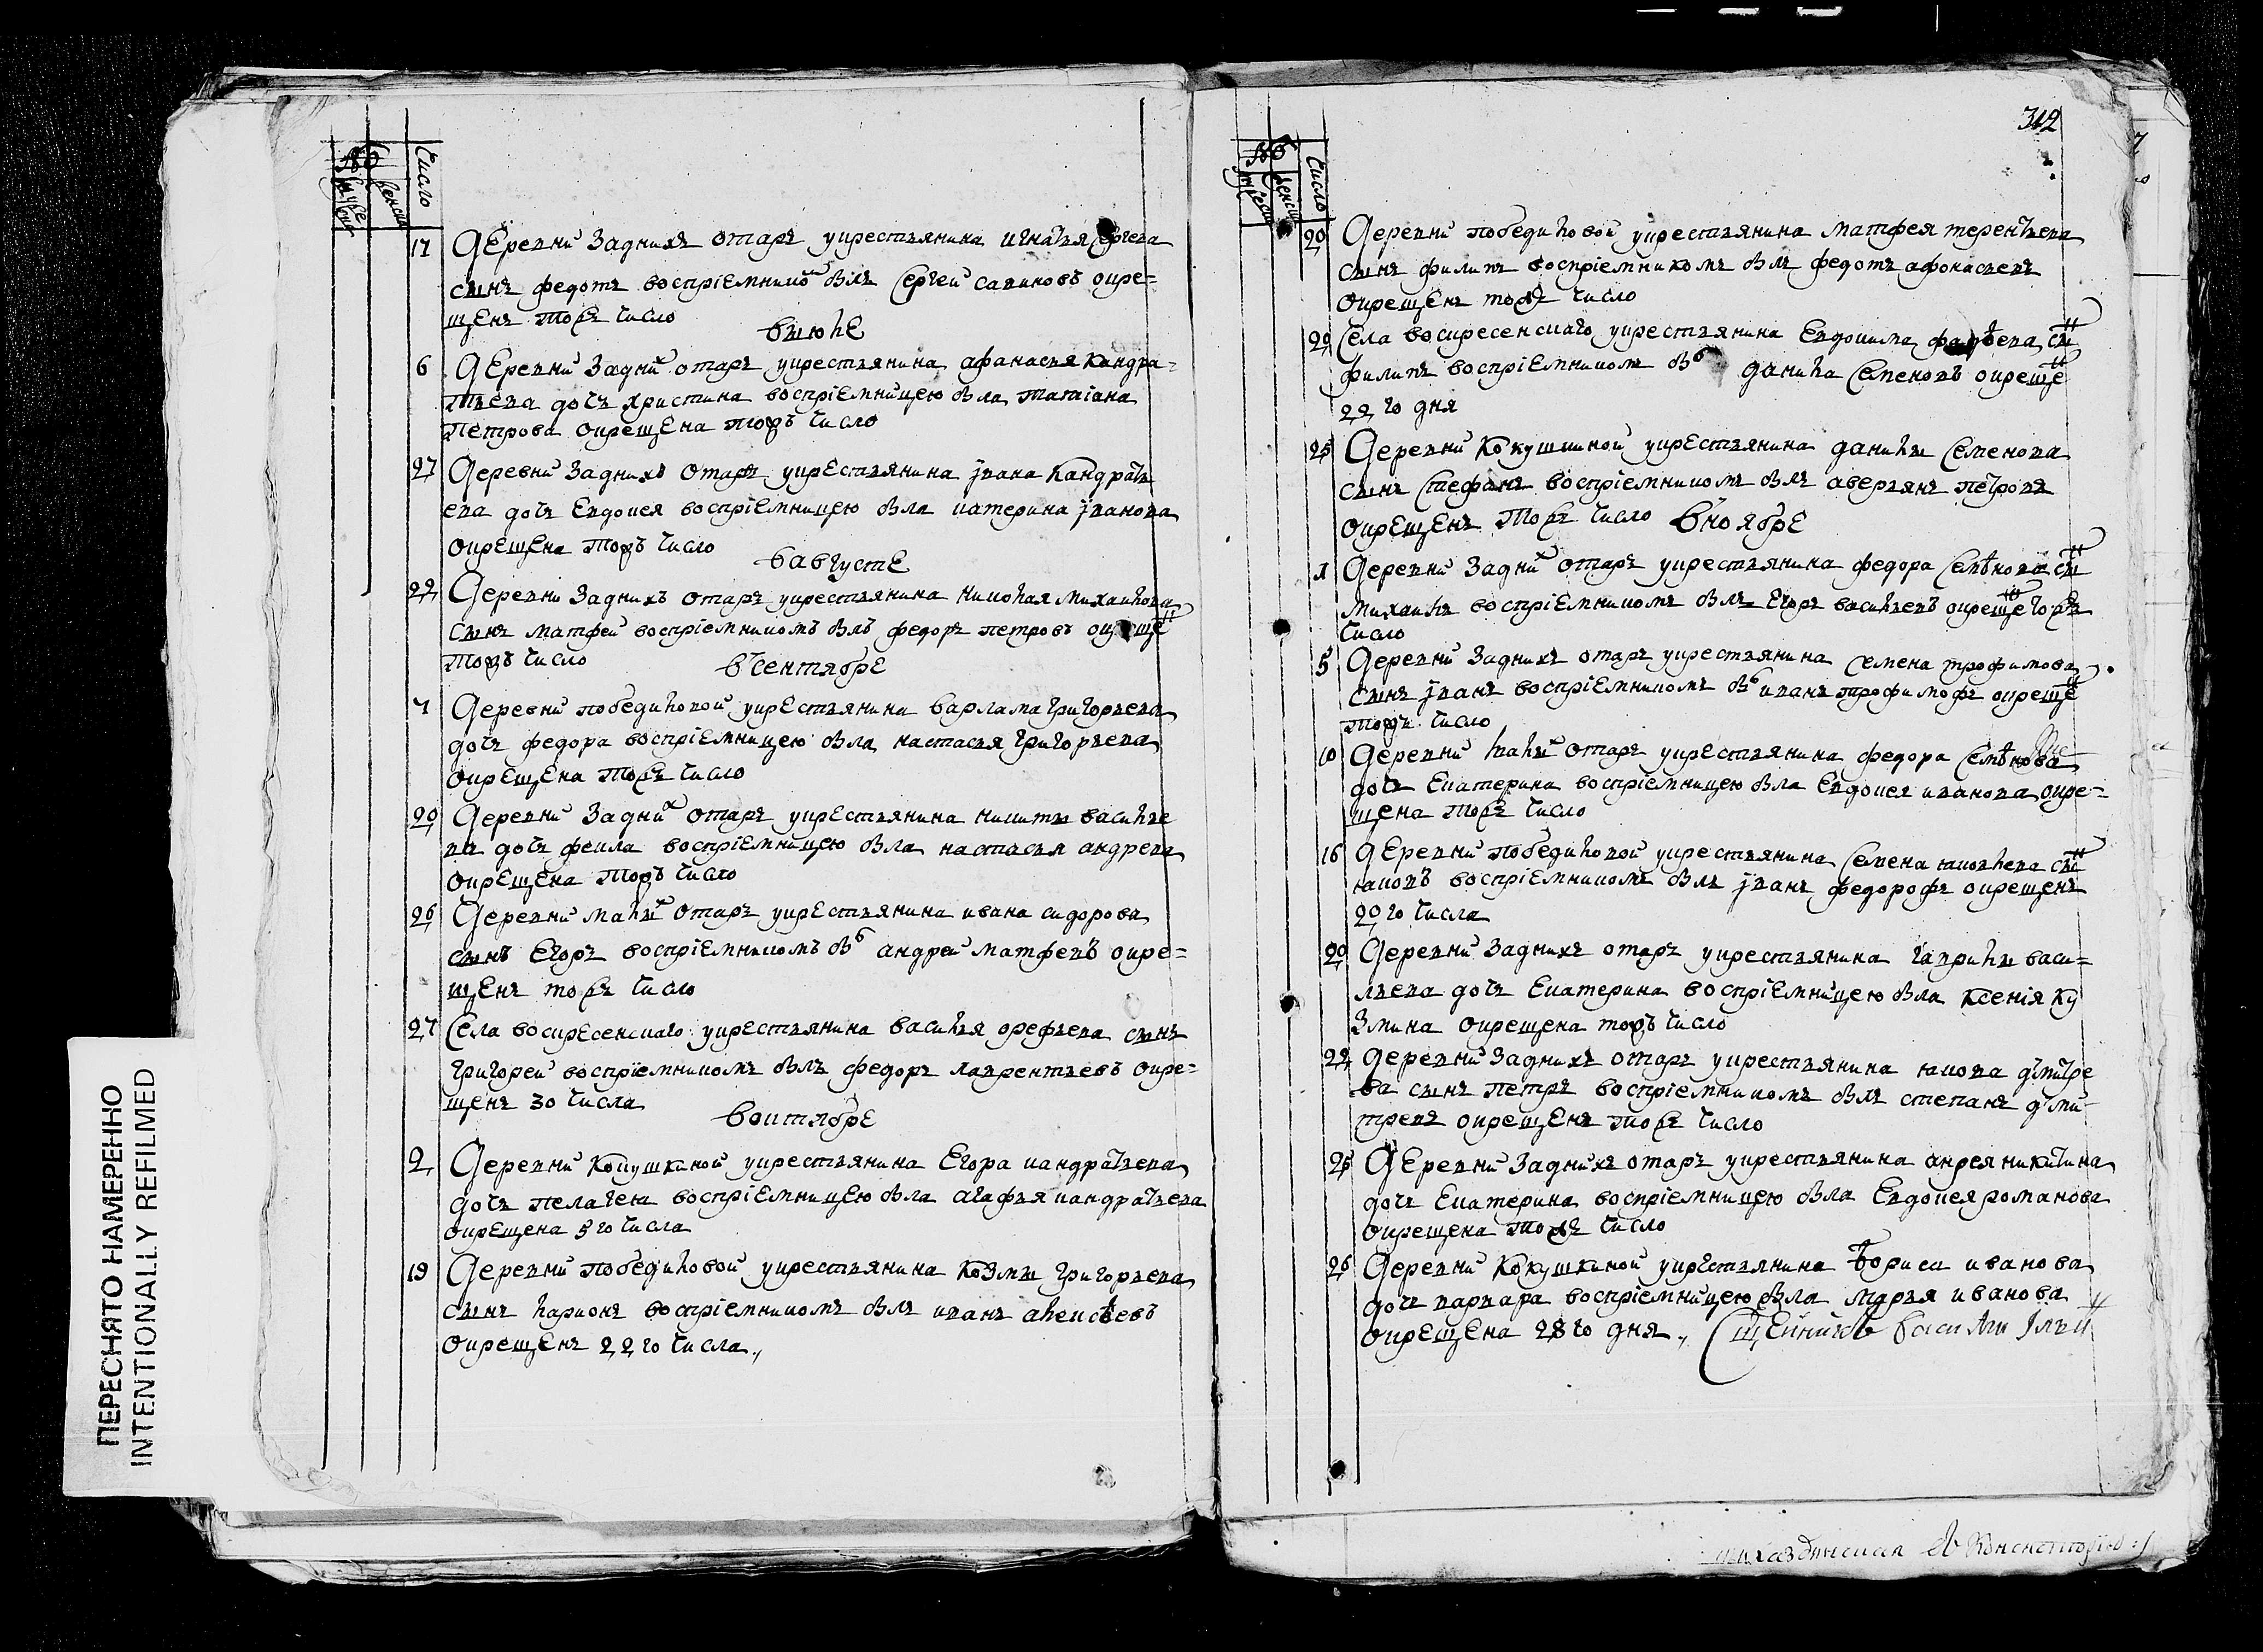 Число
17 Деревни Задникъ отаръ укрестьянина игнатья сергева
сынъ федотъ воспріемникомъ былъ Сергеи савиновъ окре=
щенъ тогожъ число
Виюле
6 Деревни Задних отаръ укрестьянина афанасья кандра=
тьева дочь христина воспріемницею была татаіана
Петрова окрещена тогожъ число
27 Деревни Заднихъ отаръ укрестьянина Iвана кандрать
ева дочь Евдокея воспріемницею была катерина Iванова
окрещена тогожъ число
Вавгусте
22 Деревни Заднихъ отаръ укрестьянина николая михаилова
сынъ матфеи воспріемникомъ былъ федоръ петровъ окрещен
тогожъ число
Всентябре
7 Деревни победиловой укрестьянина варлама григорьева
дочь федора воспріемницею была настасья григорьева
окрещена тогожъ число
20 Деревни Задних отаръ укрестьянина никиты василье
ва дочь фекла воспріемницею была настасья андрева
окрещена тогожъ число
26 Деревни малых отаръ укрестьянина ивана сидорова
сынъ Егоръ воспріемникомъ был андреи матфевъ окре=
щенъ тогожъ число
27 Села воскресенскаго укрестьянина василья орефьева сынъ
григореи воспріемникомъ былъ федоръ лаврентьевъ окре=
щенъ 30 числа
Воктябре
2 Деревни Кокушкиной укрестьянина Егора кандратьева
дочь пелагею воспріемницею была агафья кандратьева
окрещена 5 го числа
19 Деревни победиловой укрестьянина козмы григорьева
сынъ ларионъ воспріемникомъ былъ иванъ алексѣевъ
окрещенъ 22 го числа
312
Число
20 Деревни победиловой укрестьянина матфея терентьева
сынъ филипъ воспріемникомъ былъ федотъ афонасьевъ
окрещенъ тогожъ число
20 Села воскресенскаго укрестьянина Евдокима сын
филипъ воспріемникомъ был данила Семеновъ окрещен
22 го дня
25 Деревни Кокушкиной укрестьянина данилы Семенова
сынъ Стефанъ воспріемникомъ былъ аверьянъ петровъ
окрещенъ тогожъ число Вноябре
1 Деревни Задних отаръ укрестьянина федора Семѣнова сын
михаилъ воспріемникомъ былъ Егоръ васильевъ окрещен тогожъ
число
5 Деревни Заднихъ отаръ укрестьянина семена трофимова
сынъ Iванъ воспріемникомъ был иванъ трофимофъ окрещен
тогожъ число
10 Деревни малых отаръ укрестьянина федора Семѣнова
дочь Екатерина воспріемницею была Евдокея иванова окре=
щена тогожъ число
16 Деревни победиловой укрестьянина Семена яковлева сын
яковъ воспріемникомъ былъ Iванъ федорофъ окрещенъ
20 го числа
20 Деревни Заднихъ отаръ укрестьянина гаврилы васи=
льева дочь Екатерина воспріемницею была ксенія ку
змина окрещена тогожъ число
22 Деревни Заднихъ отаръ укрестьянина якова дмитре
ва сынъ петръ воспріемникомъ былъ степанъ дми
тревъ окрещенъ тогожъ число
25 Деревни Заднихъ отаръ укрестьянина анрея никитина
дочь Екатерина воспріемницею была Евдокея романова
окрещена тогожъ число
26 Деревни Кокушкиной укрестьянина бориса иванова
дочь варвара воспріемницею была марья иванова
окрещена 28 го дня
ПЕРЕСНЯТО НАМЕРЕННО
INTENTIONALLY REFILMED